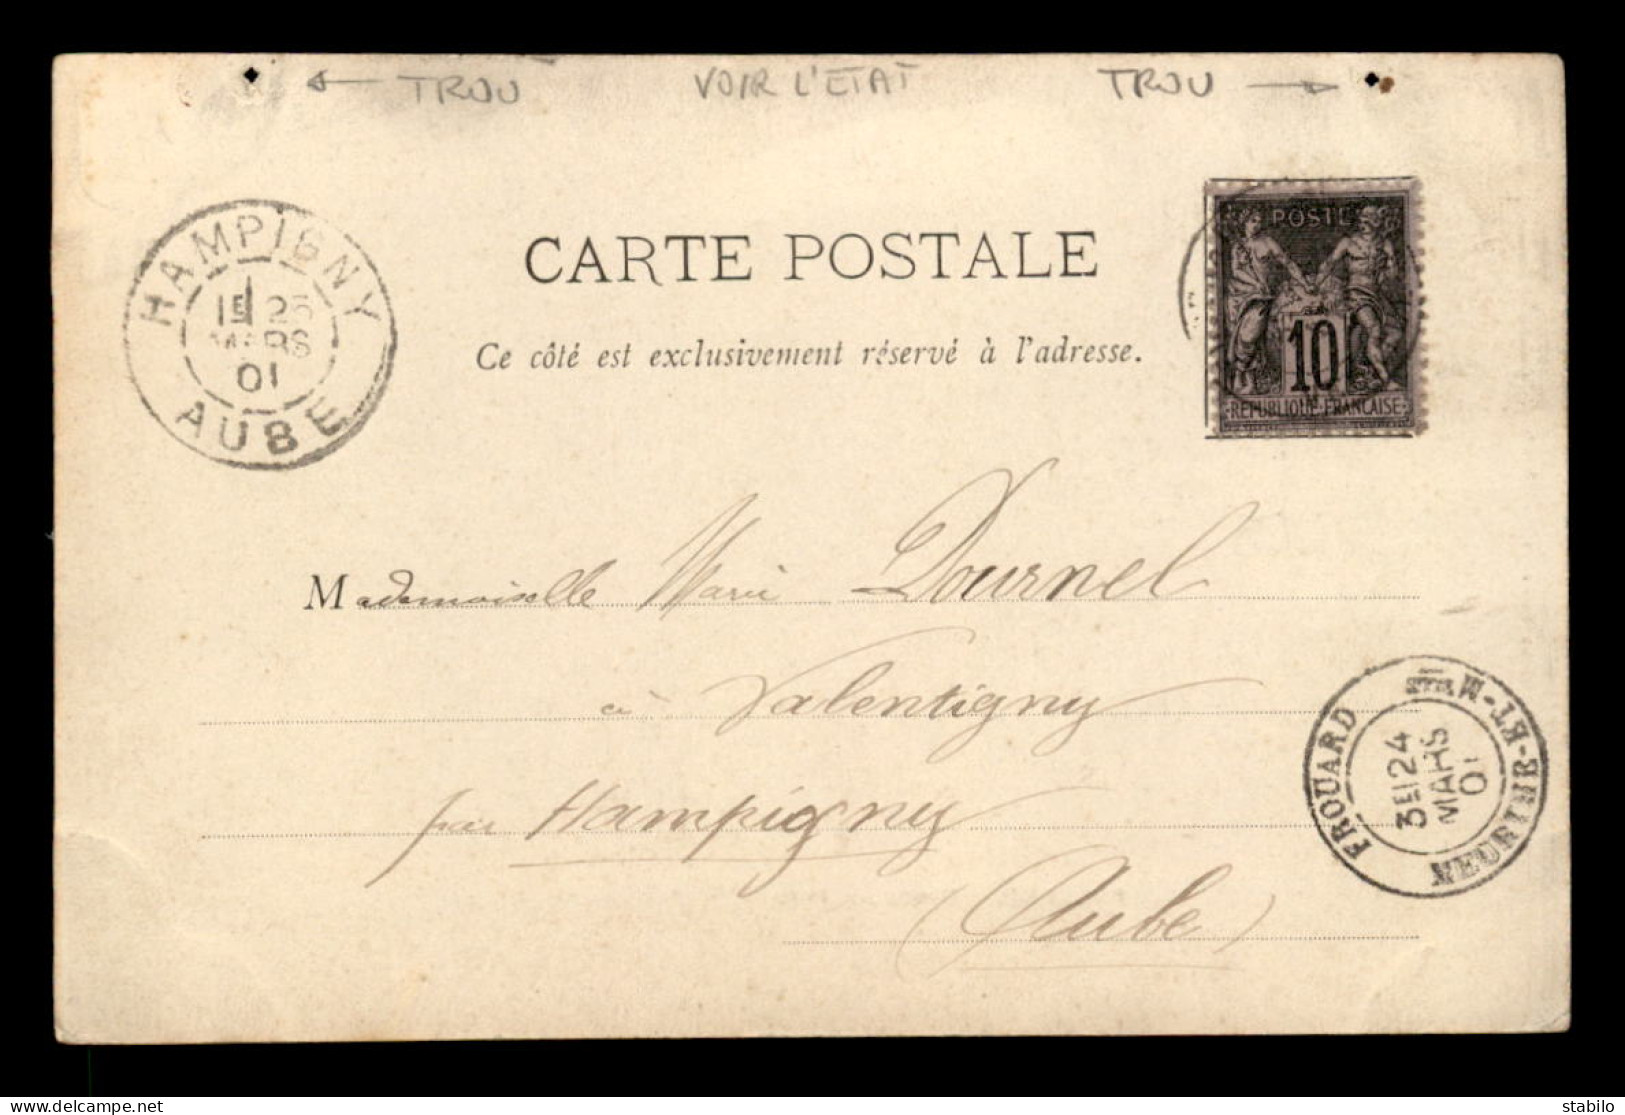 TROU VOIR L'ETAT TROU
HAMPIGNY
1E 25
MARS
01
AUBE
CARTE POSTALE
Ce côté est exclusivement réservé à l'adresse.
POSTE
10
REPUBLIQUE FRANCAISE
Mademoiselle Marie Dournel
à Valentigny
par Hampigny
(Aube)
FROUARD
3E 24
MARS
01
NEUFCHER-ET-M
delcampe.net
stabilo